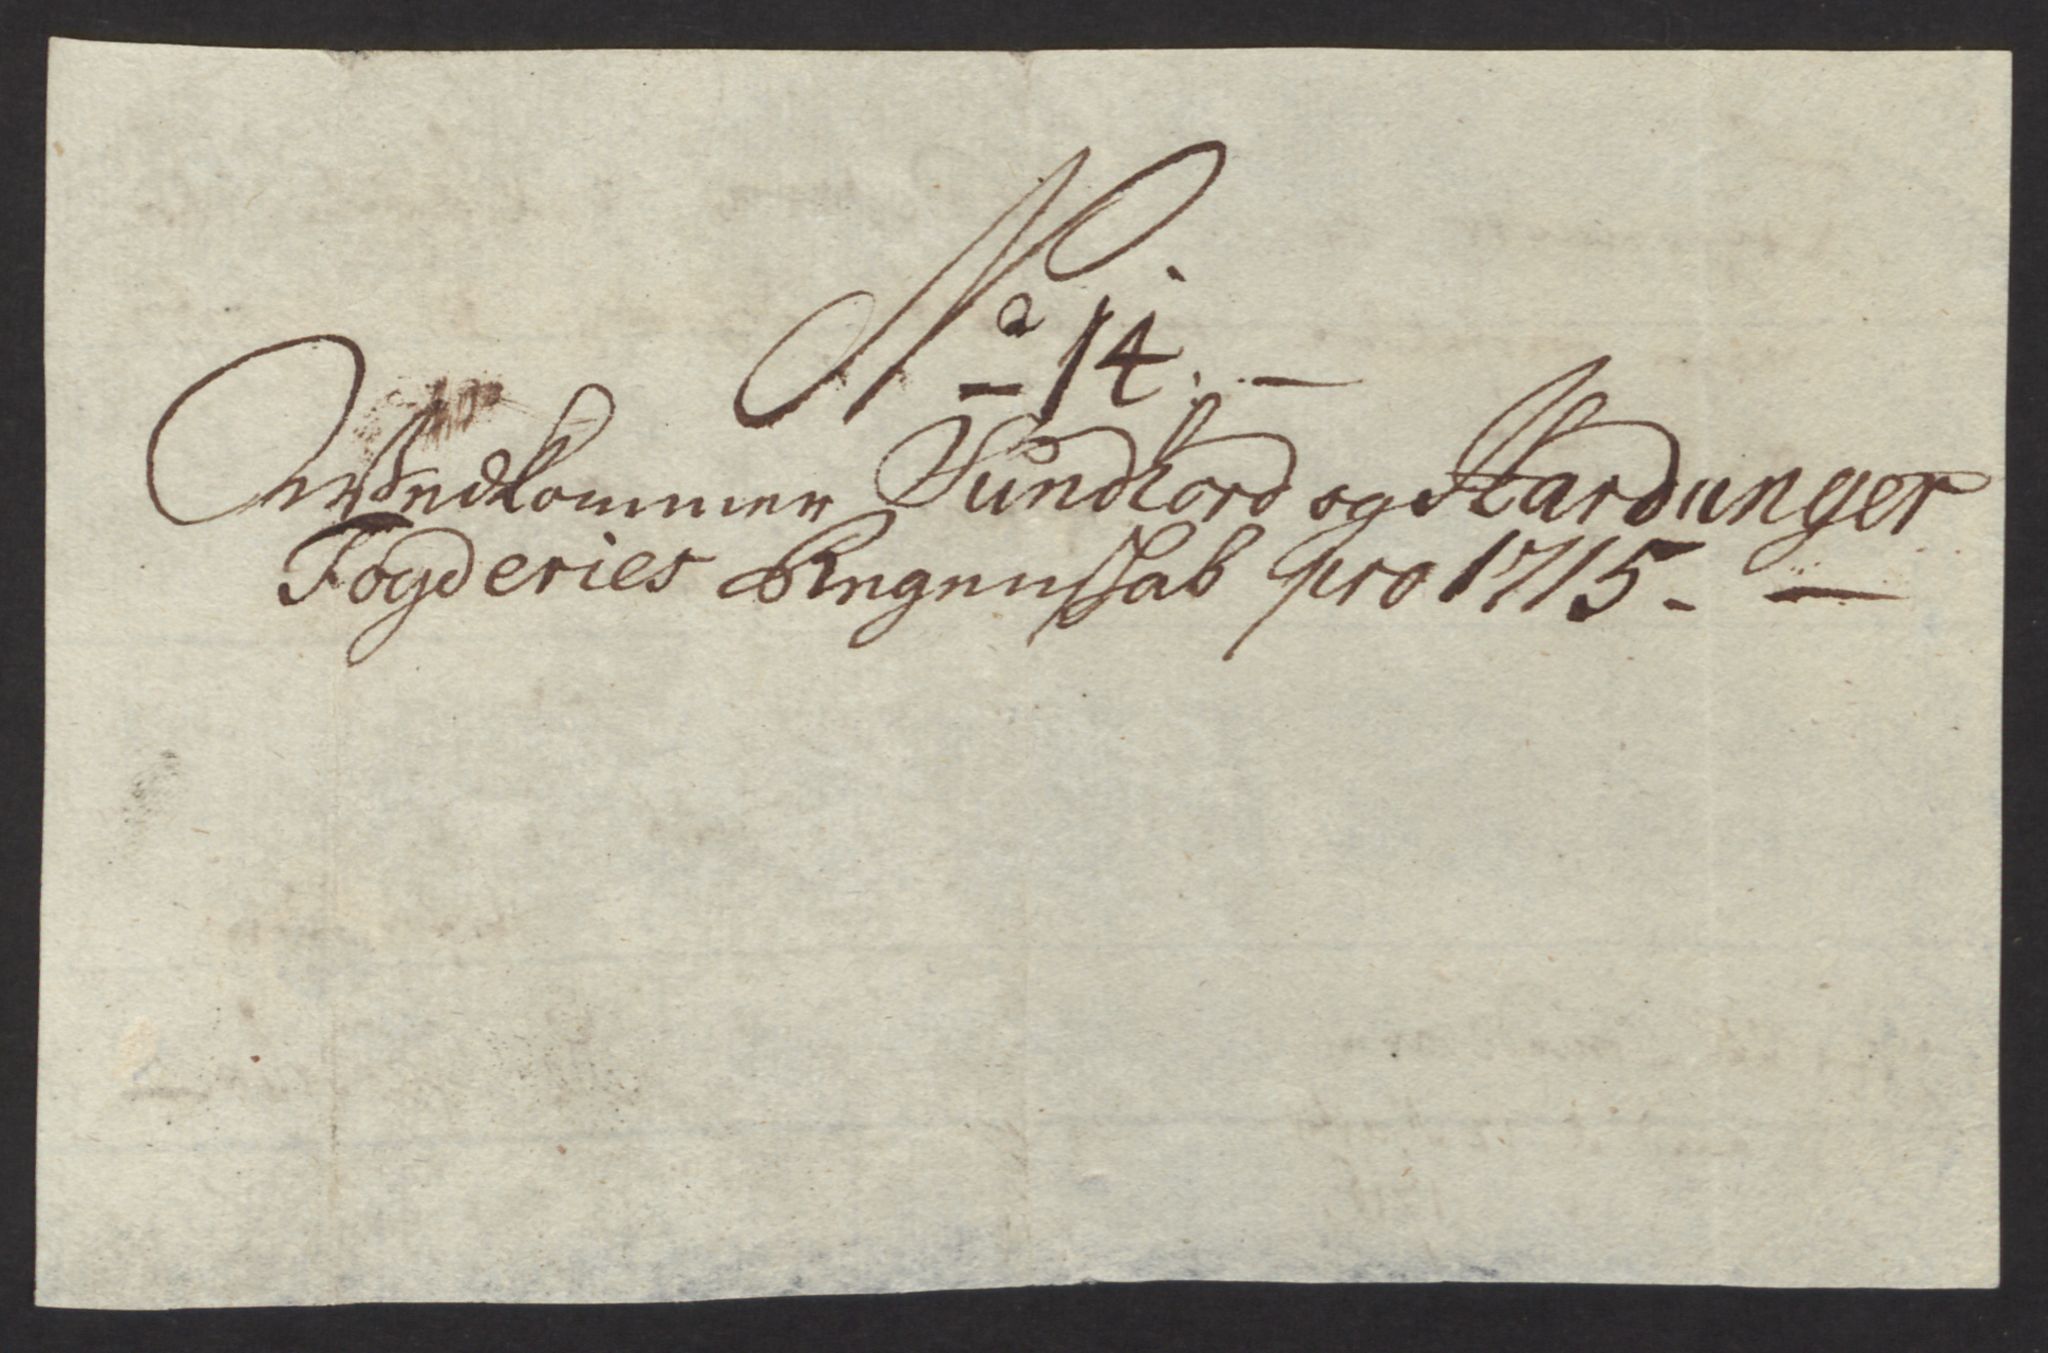 No 14.
Wedkommer Sundhord og Hardanger
Fogderies Regenskab pro 1715.